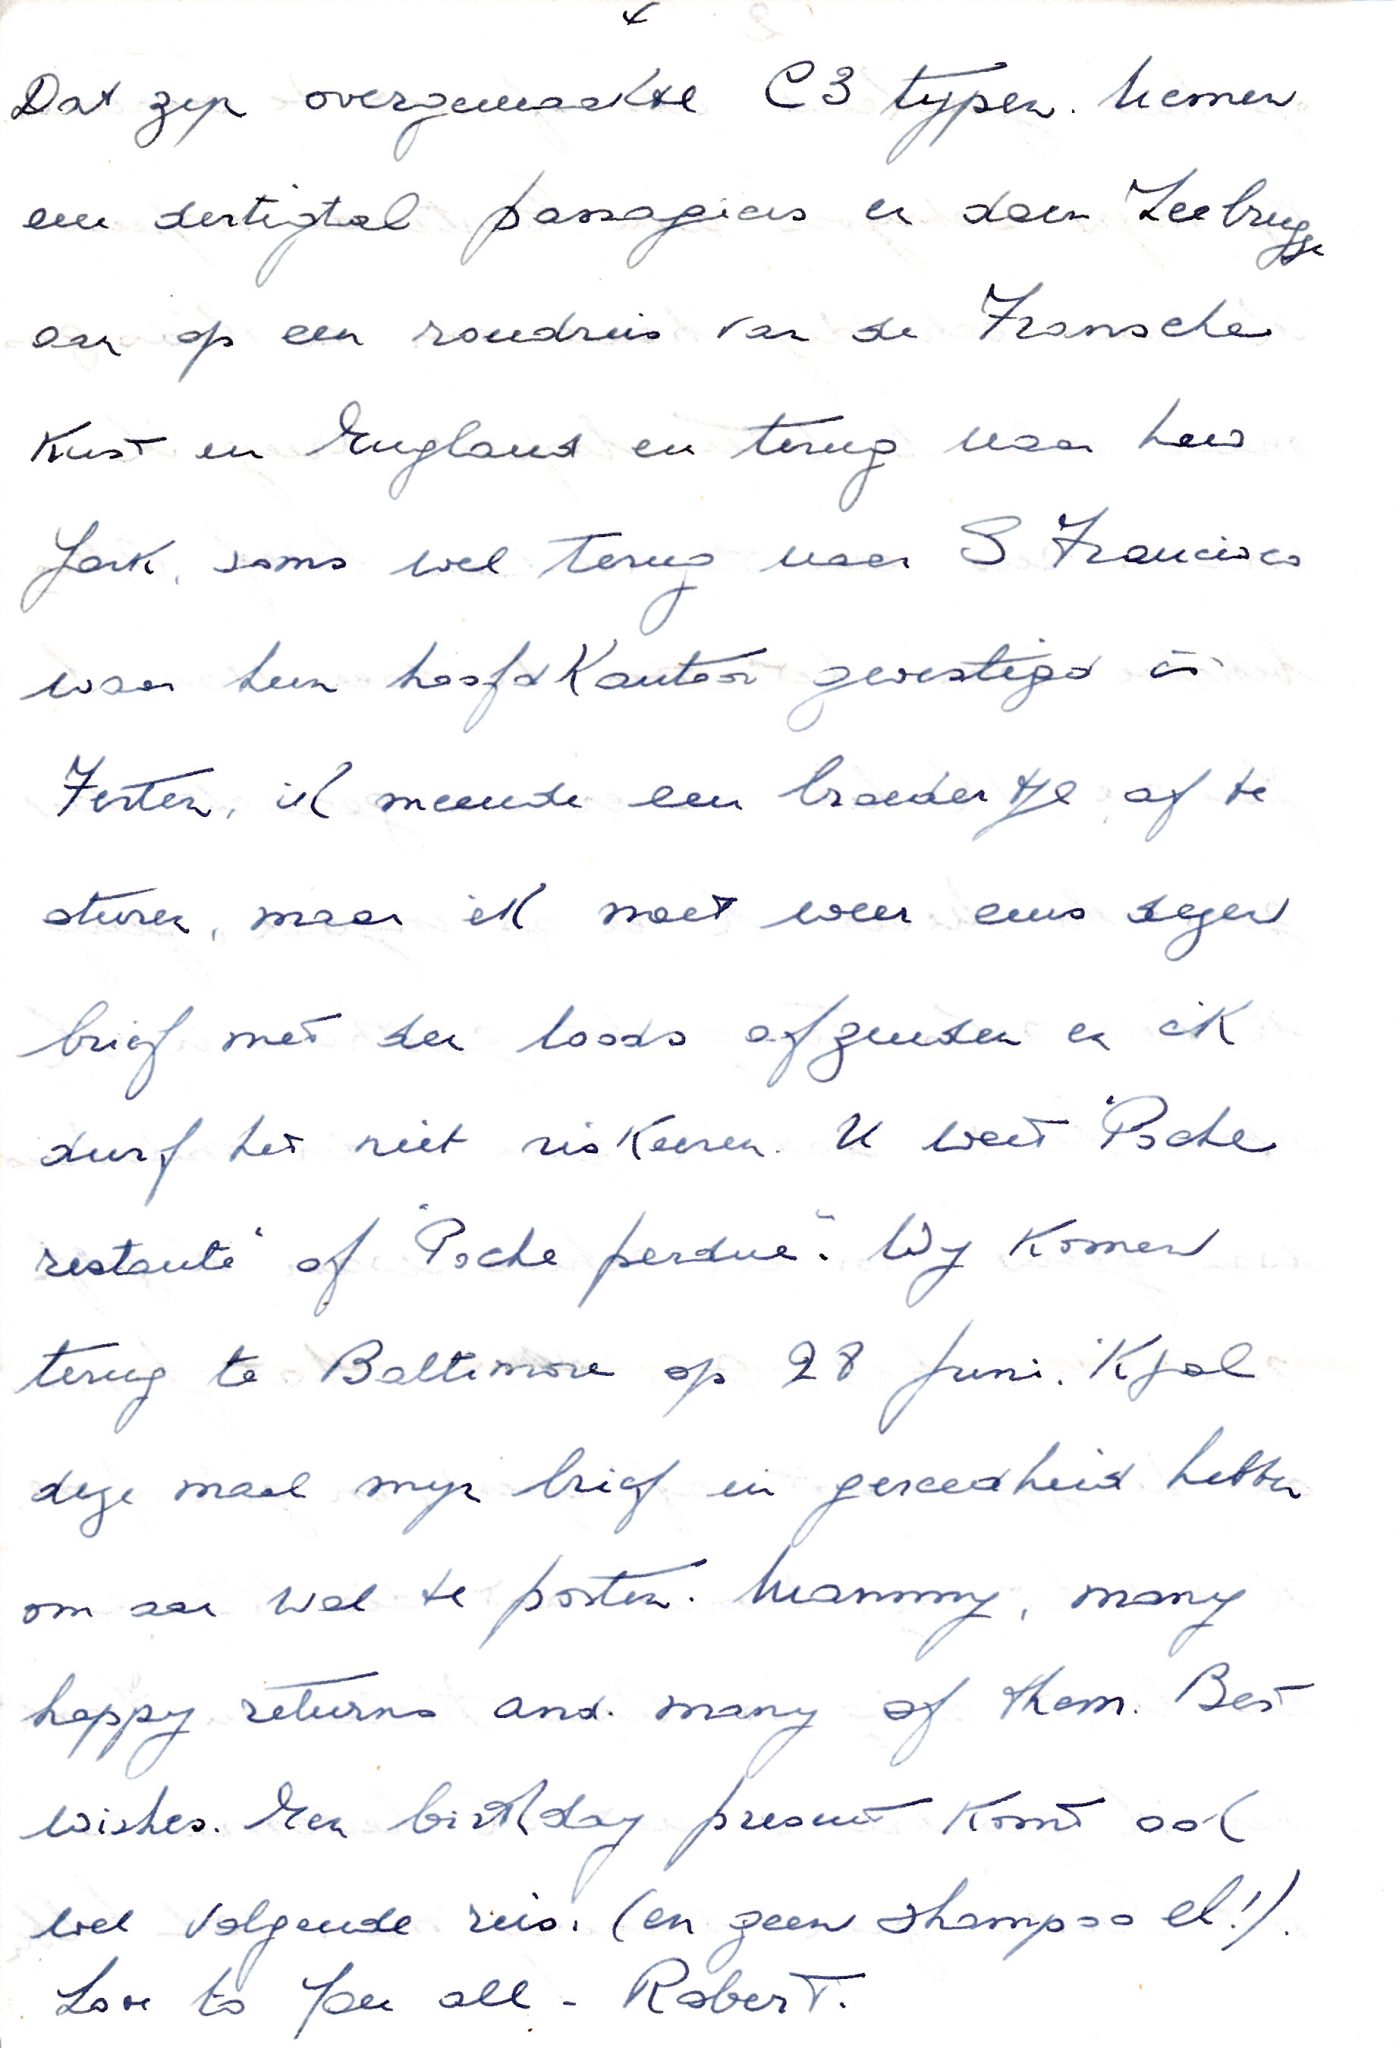 4
Dat zijn overgemaakte C3 typen. Nemen
een dertigtal passagiers en doen Zeebrugge
aan op een rondreis van de Fransche
Kust en England en terug naar New
York, soms wel terug naar S Francisco
waar hun hoofdKantoor gevestigd is
Festen, ik meende een broedertje af te
sturen, maar ik moet weer eens dezen
brief met den loods afzenden en ik
durf het niet risKeeren. U weet "Poche
restante" of "Poche perdue". Wij Komen
terug te Baltimore op 28 Juni. 'K zal
deze maal mijn brief in gereedheid hebben
om aan wal te posten. Mammy, many
happy returns and many of them. Best
wishes. Een birthday present Komt ook
wel volgende reis. (en geen shampoo el!).
Love to you all - Robert.